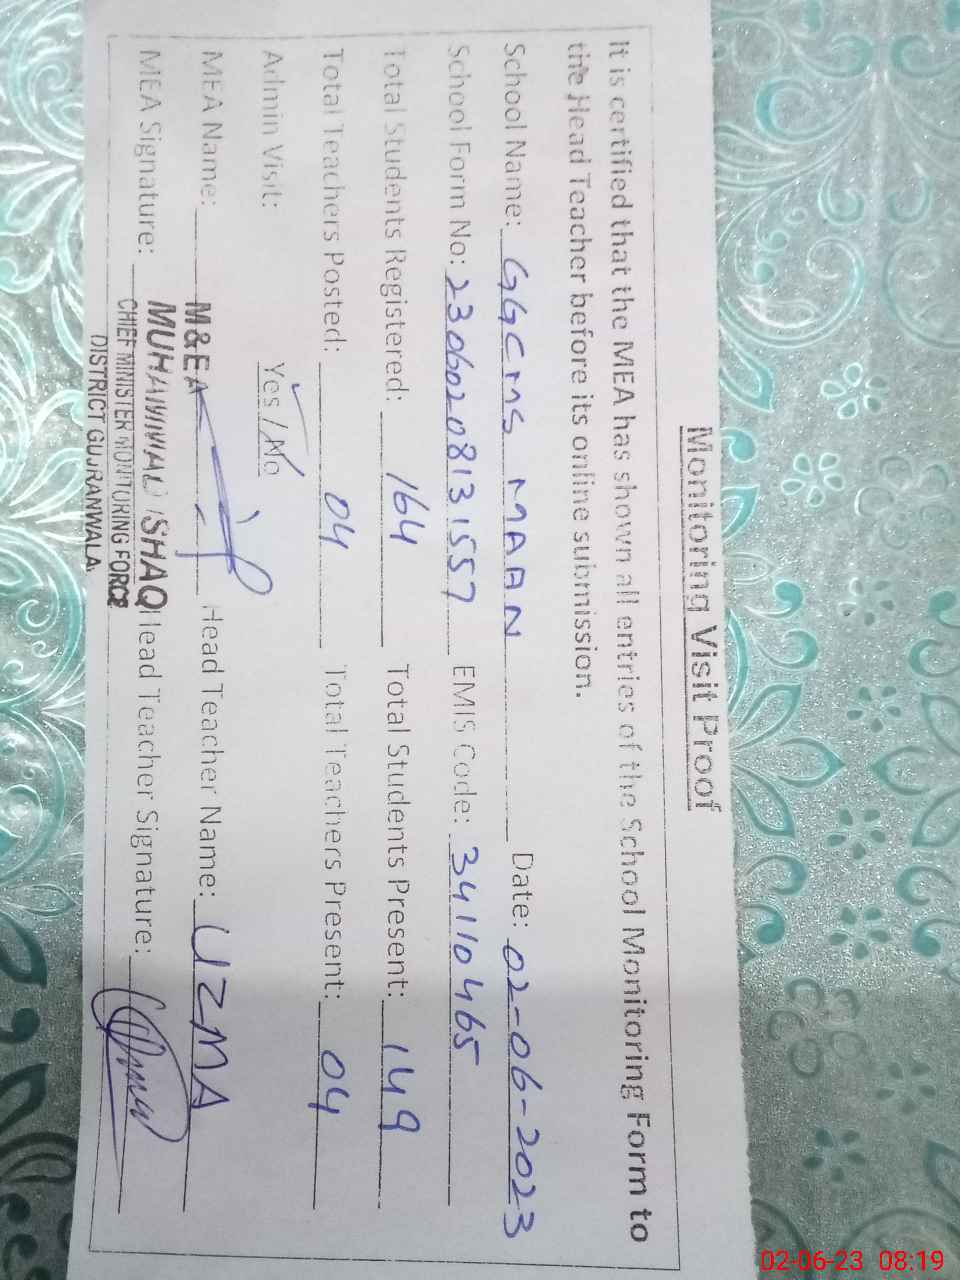 Monitoring Visit Proof
It is certified that the MEA has shown all entries of the School Monitoring Form to
the Head Teacher before its online submission.
School Name: GGCMS MAAN Date: 02-06-2023
School Form No: 23060208131557 EMIS Code: 34110465
Total Students Registered: 164 Total Students Present: 149
Total Teachers Posted: 04 Total Teachers Present: 04
Admin Visit: Yes / No
MEA Name: M&EA Head Teacher Name: UZMA
MEA Signature: MUHAMMAD ISHAQ Head Teacher Signature:
CHIEF MINISTER MONITORING FORCE
DISTRICT GUJRANWALA.
02-06-23 08:19